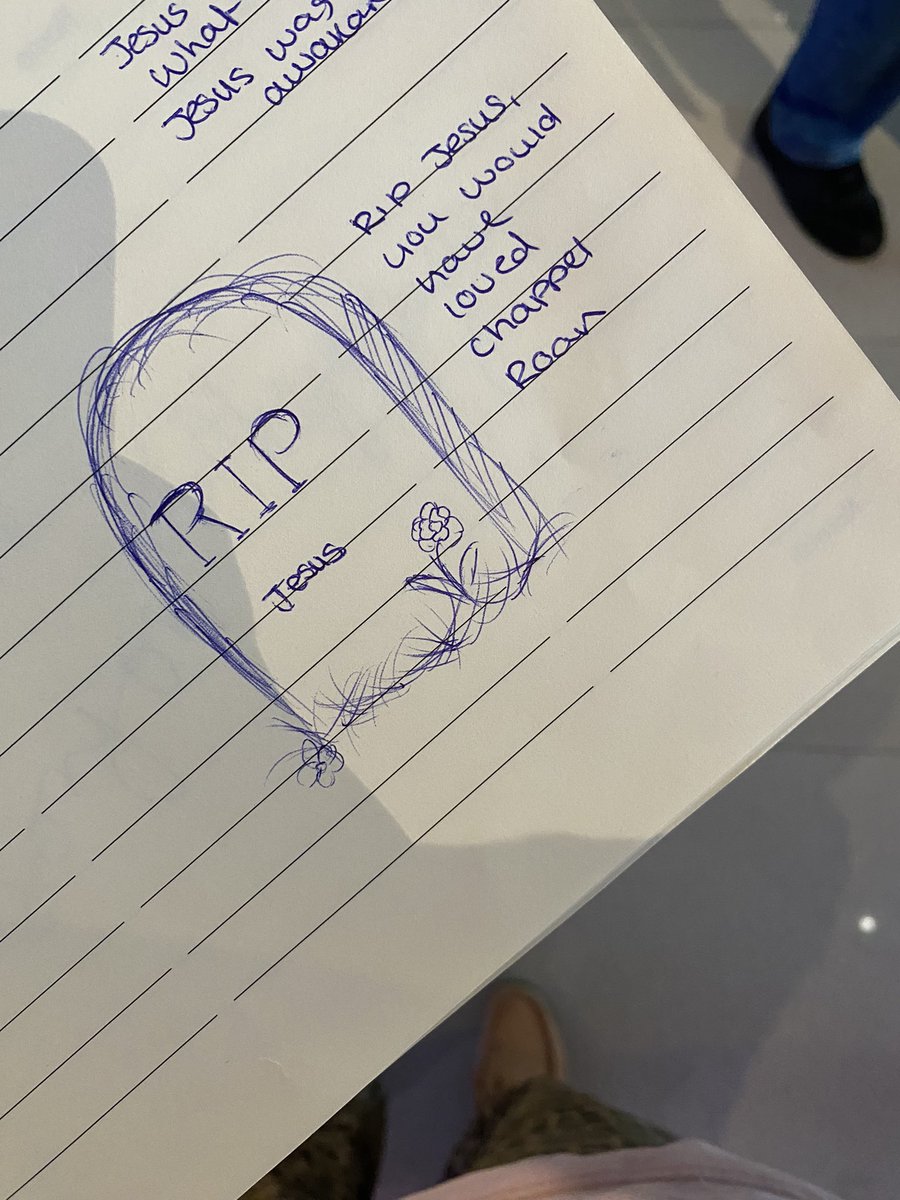 Jesus
What
Jesus was
RIP Jesus,
you would
have
loved
chappel
Roan
RIP
Jesus